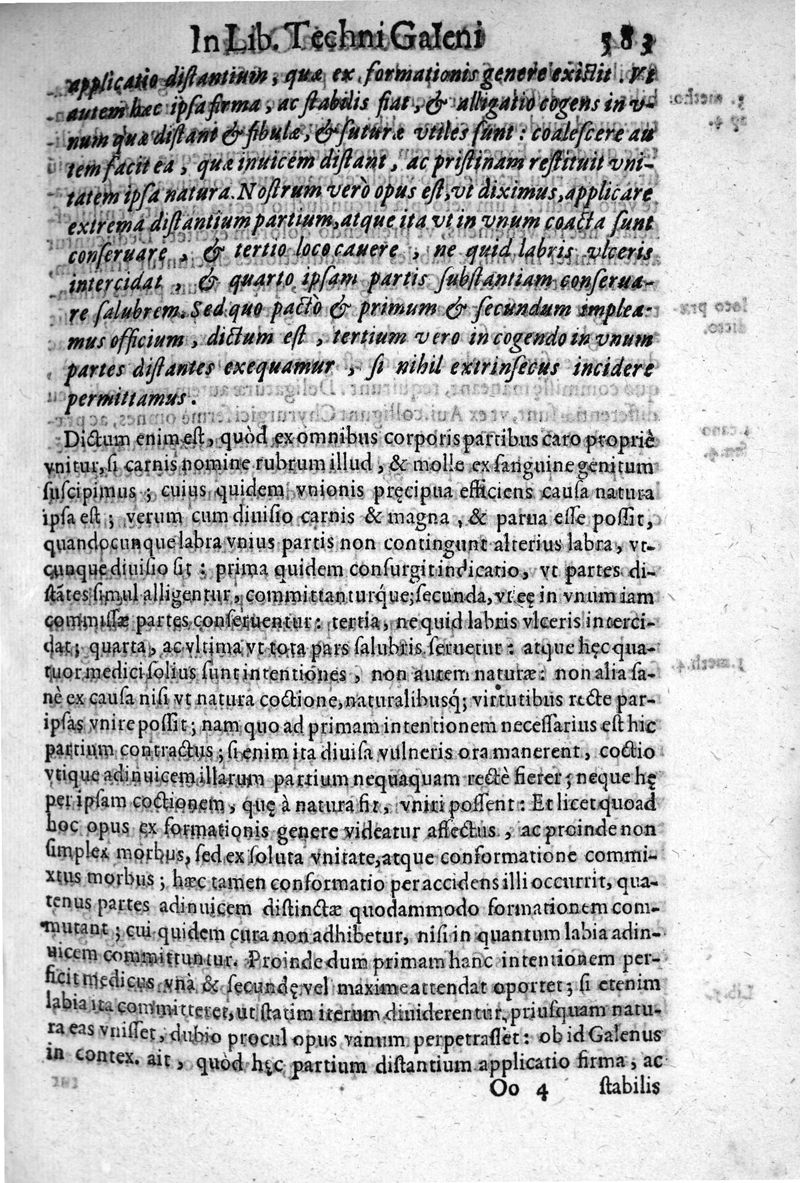 In Lib. Techni Galeni 583
applicatio distantium, quæ ex formationis genere existit. Vt
autem hæc ipsa firma, ac stabilis fiat, & alligatio cogens in v-
num quæ distant & fibulæ, & suturæ vtiles sunt: coalescere au
tem facit ea, quæ inuicem distant, ac pristinam restituit vni-
tatem ipsa natura. Nostrum verò opus est, vt diximus, applicare
extrema distantium partium, atque ita vt in vnum coacta sunt
conseruare, & tertio loco cauere, ne quid labris vlceris
intercidat, & quarto ipsam partis substantiam conserua-
re salubrem. Sed quo pacto & primum & secundum implea-
mus officium, dictum est, tertium vero in cogendo in vnum
partes distantes exequamur, si nihil extrinsecus incidere
permittamus.
Dictum enim est, quòd ex omnibus corporis partibus caro propriè
vnitur, si carnis nomine rubrum illud, & molle ex sanguine genitum
suscipimus; cuius quidem vnionis pręcipua efficiens causa natura
ipsa est; verum cum diuisio carnis & magna, & parua esse possit,
quandocunque labra vnius partis non contingunt alterius labra, vt-
cunque diuisio sit: prima quidem consurgit indicatio, vt partes di-
stātes simul alligentur, committanturque; secunda, vt eę in vnum iam
commissæ partes conseruentur: tertia, ne quid labris vlceris interci-
dat; quarta, ac vltima vt tota pars salubris seruetur: atque hęc qua-
tuor medici solius sunt intentiones, non autem naturæ: non alia sa-
nè ex causa nisi vt natura coctione, naturalibusq; virtutibus recte par-
ipsas vnire possit; nam quo ad primam intentionem necessarius est hic
partium contractus; si enim ita diuisa vulneris ora manerent, coctio
vtique adinuicem illarum partium nequaquam rectè fieret; neque hę
per ipsam coctionem, quę à natura fit, vniri possent: Et licet quoad
hoc opus ex formationis genere videatur affectus, ac proinde non
simplex morbus, sed ex soluta vnitate, atque conformatione commi-
xtus morbus; hæc tamen conformatio per accidens illi occurrit, qua-
tenus partes adinuicem distinctæ quodammodo formationem com-
mutant; cui quidem cura non adhibetur, nisi in quantum labia adin-
uicem committuntur. Proinde dum primam hanc intentionem per-
ficit medicus vnà & secundę vel maxime attendat oportet; si etenim
labia ita committeret, ut statim iterum diuiderentur, priusquam natu-
ra eas vnisset, dubio procul opus vanum perpetrasset: ob id Galenus
in contex. ait, quòd hęc partium distantium applicatio firma, ac
Oo 4 stabilis